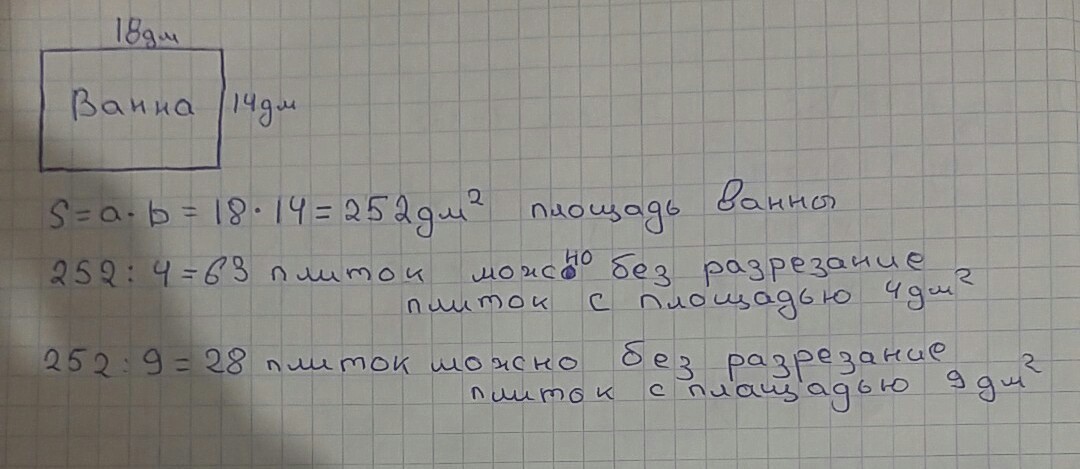 18дм
Ванна 14дм
S=a·b=18·14=252дм² площадь ванны
252:4=63 плиток можно без разрезание
плиток с площадью 4дм²
252:9=28 плиток можно без разрезание
плиток с плащадью 9дм²